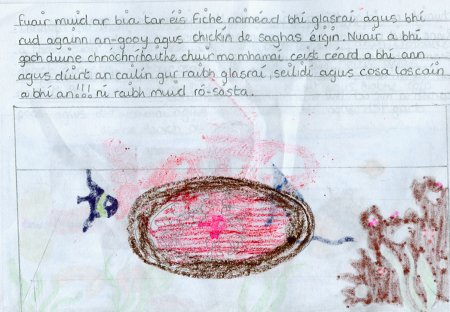 Fuair muid ár bia tar éis fiche nóiméad bhí glasraí agus bhí
rud againn an-gooy agus chickín de saghas éigin. Nuair a bhí
gach duine chnochnithaithe chuir mo mhamaí ceist céard a bhí ann
agus dúirt an cailín gur raibh glasraí, seilidí agus cosa loscáin
a bhí an!!! ní raibh muid ró-sásta.